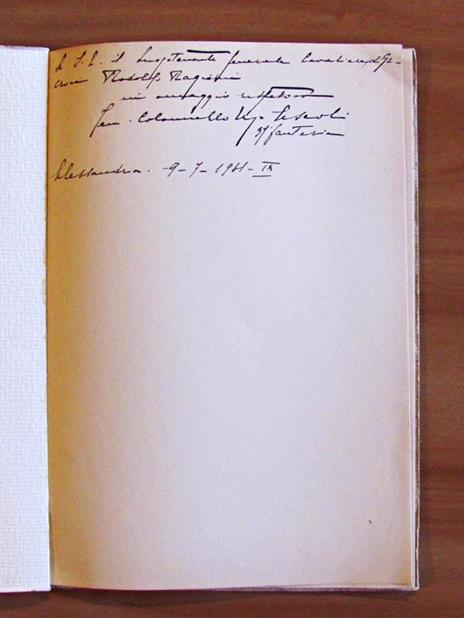 A S. E. il Luogotenente Generale Cavaliere
Rodolfo Ragioni
in omaggio rispettoso
Ten. Colonnello Ugo
Fanteria
Alessandria 9-7-1931-IX